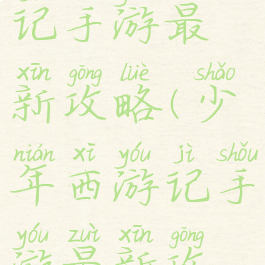 记手游最
xīn gōng lüè shǎo
新攻略(少
nián xī yóu jì shǒu
年西游记手
yóu zuì xīn gōng
游最新攻